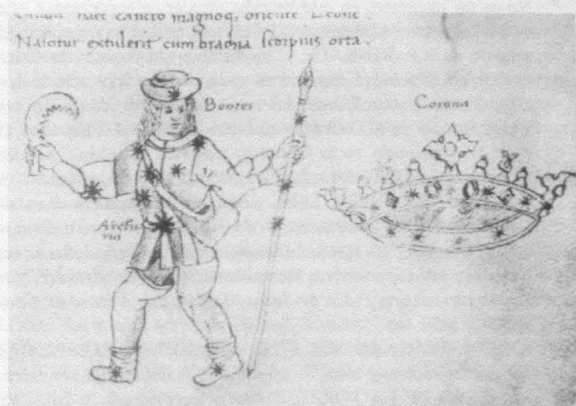 haec cancro magnoq; oriente Leone
Nascitur extulerit cum brachia scorpius orta.
Bootes
Corona
Arctu
rus